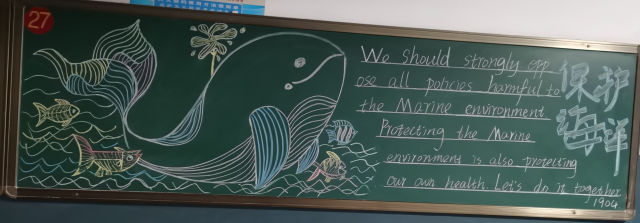 27
We should strongly opp
ose all policies harmful to
the Marine environment
Protecting the Marine
environment is also protecting
our own health. Let's do it together
1904
保护
海洋